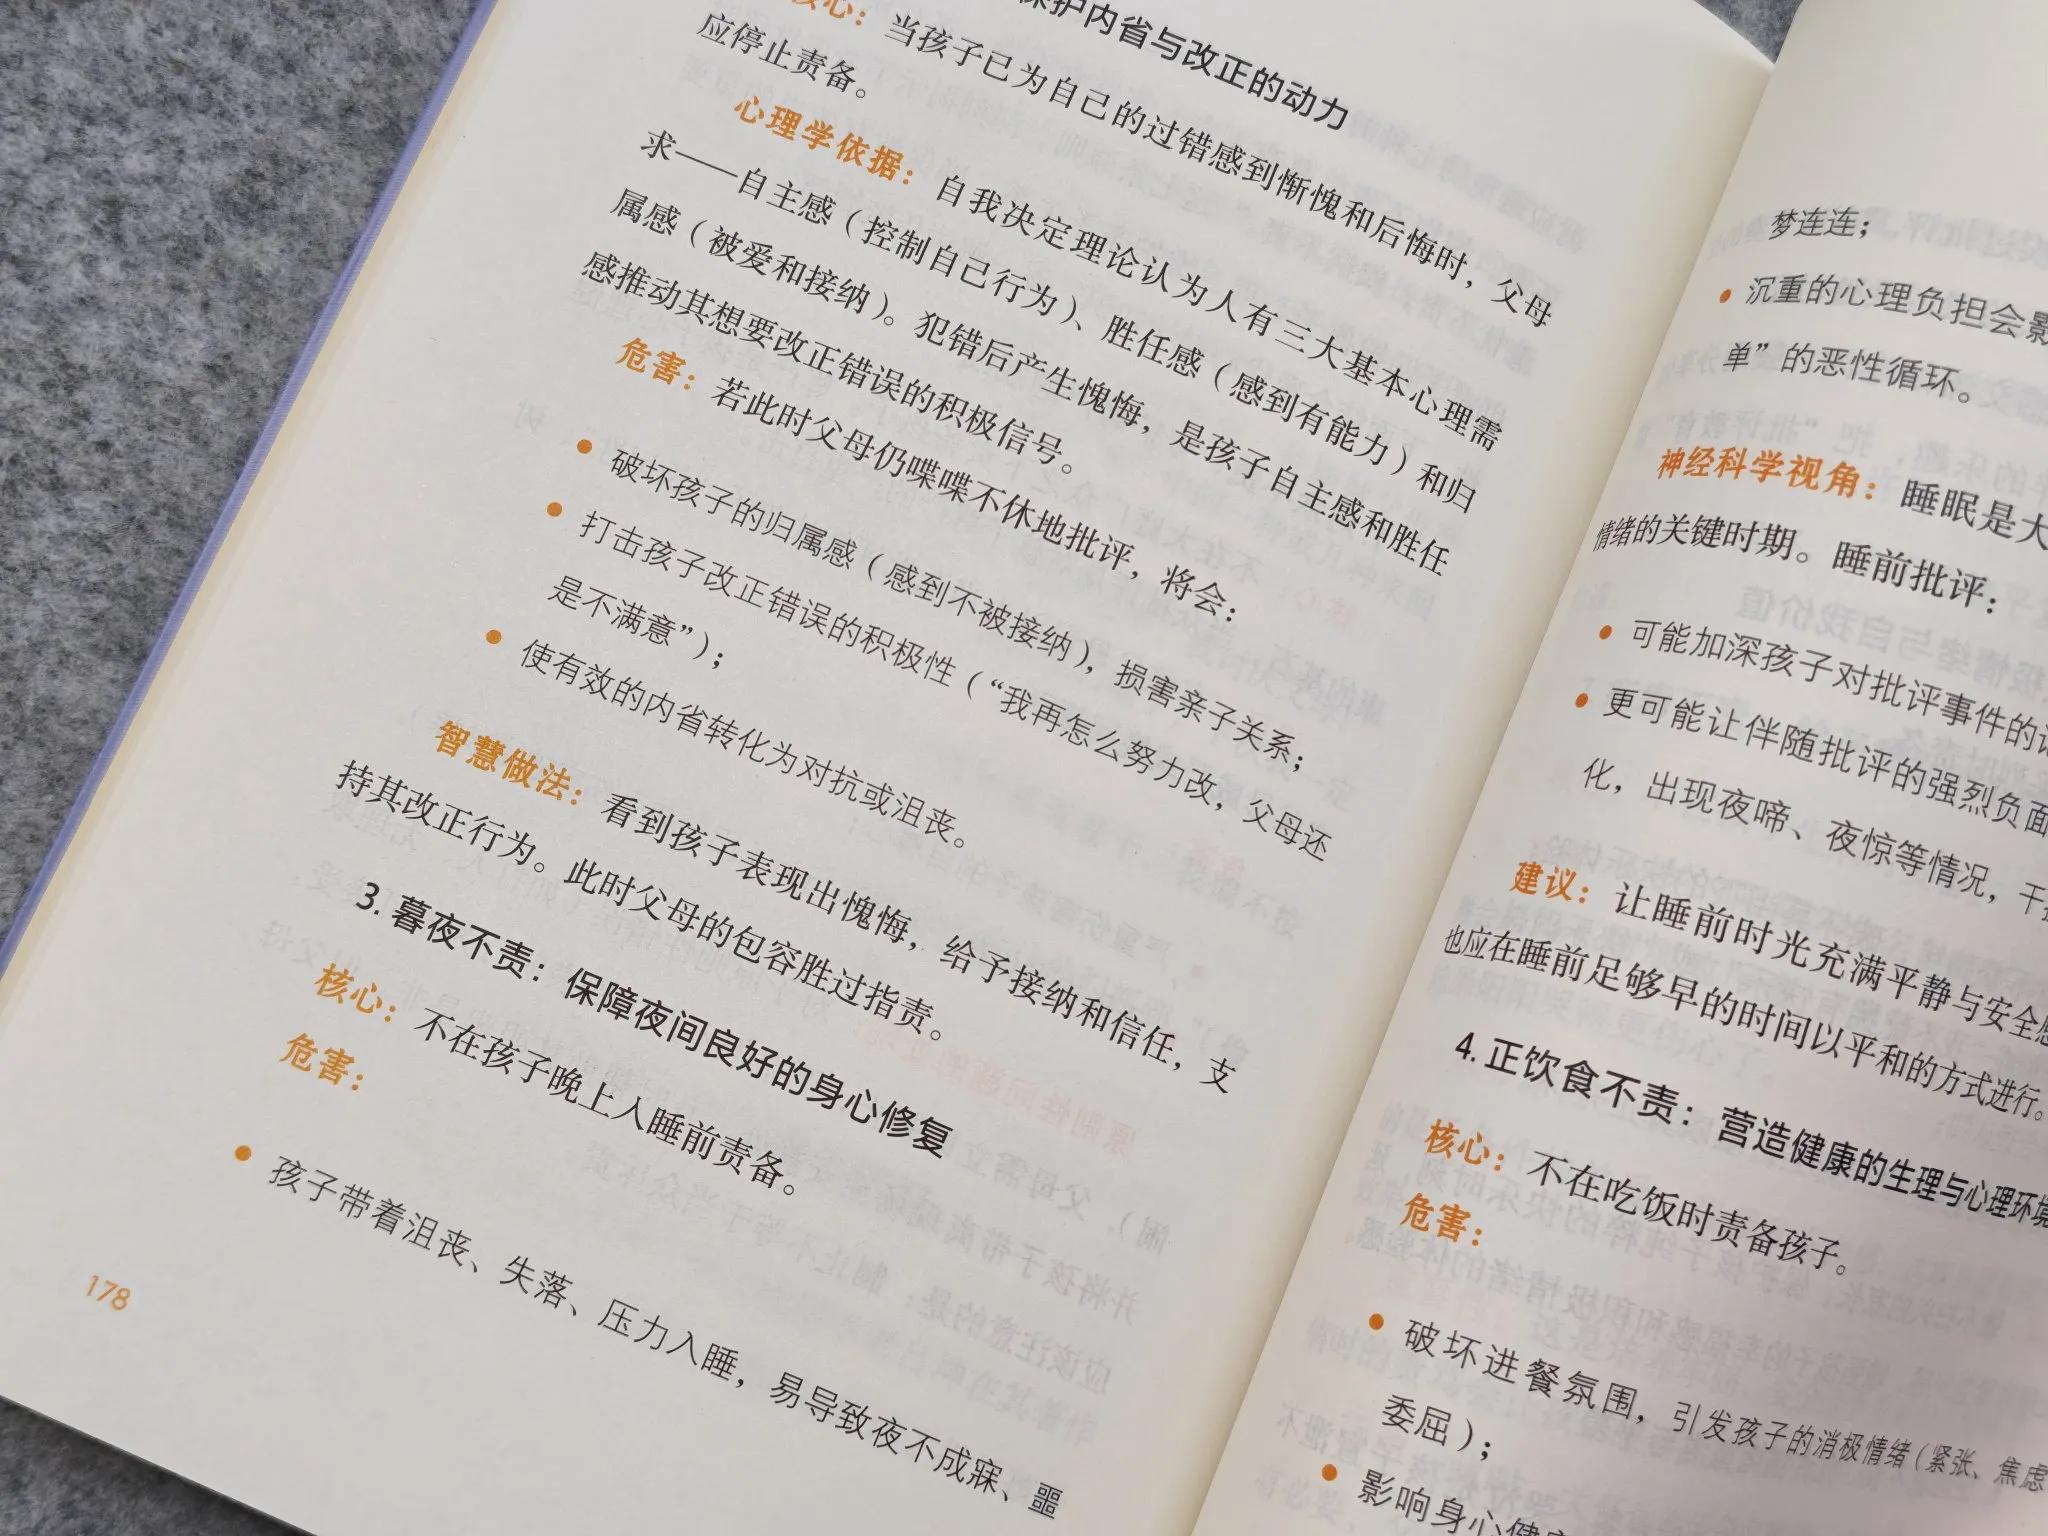 保护内省与改正的动力
核心：当孩子已为自己的过错感到惭愧和后悔时，父母
应停止责备。
心理学依据：自我决定理论认为人有三大基本心理需
求——自主感（控制自己行为）、胜任感（感到有能力）和归
属感（被爱和接纳）。犯错后产生愧悔，是孩子自主感和胜任
感推动其想要改正错误的积极信号。
危害：若此时父母仍喋喋不休地批评，将会：
● 破坏孩子的归属感（感到不被接纳），损害亲子关系；
● 打击孩子改正错误的积极性（“我再怎么努力改，父母还
是不满意”）；
● 使有效的内省转化为对抗或沮丧。
智慧做法：看到孩子表现出愧悔，给予接纳和信任，支
持其改正行为。此时父母的包容胜过指责。
3. 暮夜不责：保障夜间良好的身心修复
核心：不在孩子晚上入睡前责备。
危害：
● 孩子带着沮丧、失落、压力入睡，易导致夜不成寐、噩
178
梦连连；
● 沉重的心理负担会影
单”的恶性循环。
神经科学视角：睡眠是大
情绪的关键时期。睡前批评：
● 可能加深孩子对批评事件的
● 更可能让伴随批评的强烈负面
化，出现夜啼、夜惊等情况，干
建议：让睡前时光充满平静与安全感
也应在睡前足够早的时间以平和的方式进行。
4. 正饮食不责：营造健康的生理与心理环境
核心：不在吃饭时责备孩子。
危害：
● 破坏进餐氛围，引发孩子的消极情绪（紧张、焦虑
委屈）；
● 影响身心健康